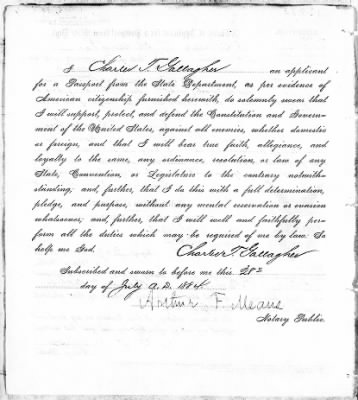 I Charles T. Gallagher an applicant
for a Passport from the State Department, as per evidence of
American citizenship furnished herewith, do solemnly swear that
I will support, protect, and defend the Constitution and Govern-
ment of the United States, against all enemies, whether domestic
or foreign, and that I will bear true faith, allegiance, and
loyalty to the same, any ordinance, resolution, or law of any
State, Convention, or Legislature to the contrary notwith-
standing; and, further, that I do this with a full determination,
pledge, and purpose, without any mental reservation or evasion
whatsoever; and, further, that I will well and faithfully per-
form all the duties which may be required of me by law. So
help me God.
Charles T. Gallagher
Subscribed and sworn to before me this 28th
day of July A.D. 1884.
Arthur F. Means
Notary Public.